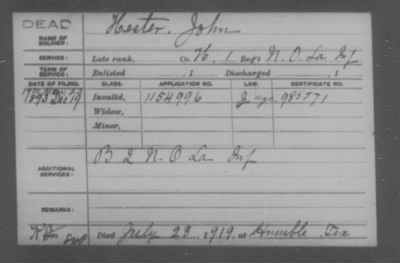 DEAD
NAME OF SOLDIER: Hester, John
SERVICE: Late rank, Co. H, 1 Reg't N. O. La Inf
TERM OF SERVICE: Enlisted , 1 Discharged , 1
DATE OF FILING. CLASS. APPLICATION NO. LAW. CERTIFICATE NO.
1893 Dec 19 Invalid, 1154996 985571
Widow,
Minor,
ADDITIONAL SERVICES: B 2 N. O La Inf
REMARKS:
Died July 23, 1919, at Humble Tex